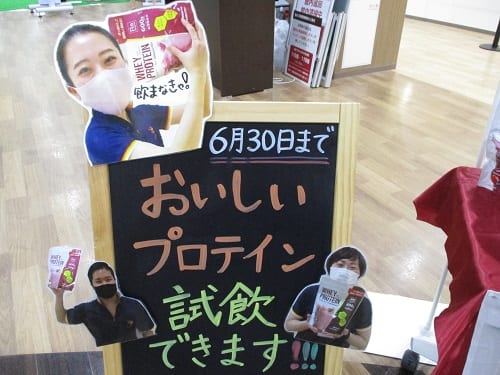 WHEY
PROTEIN
600g
飲まなきゃ!
6月30日まで
おいしい
プロテイン
試飲
できます!!!
WHEY
PROTEIN
WHEY
PROTEIN